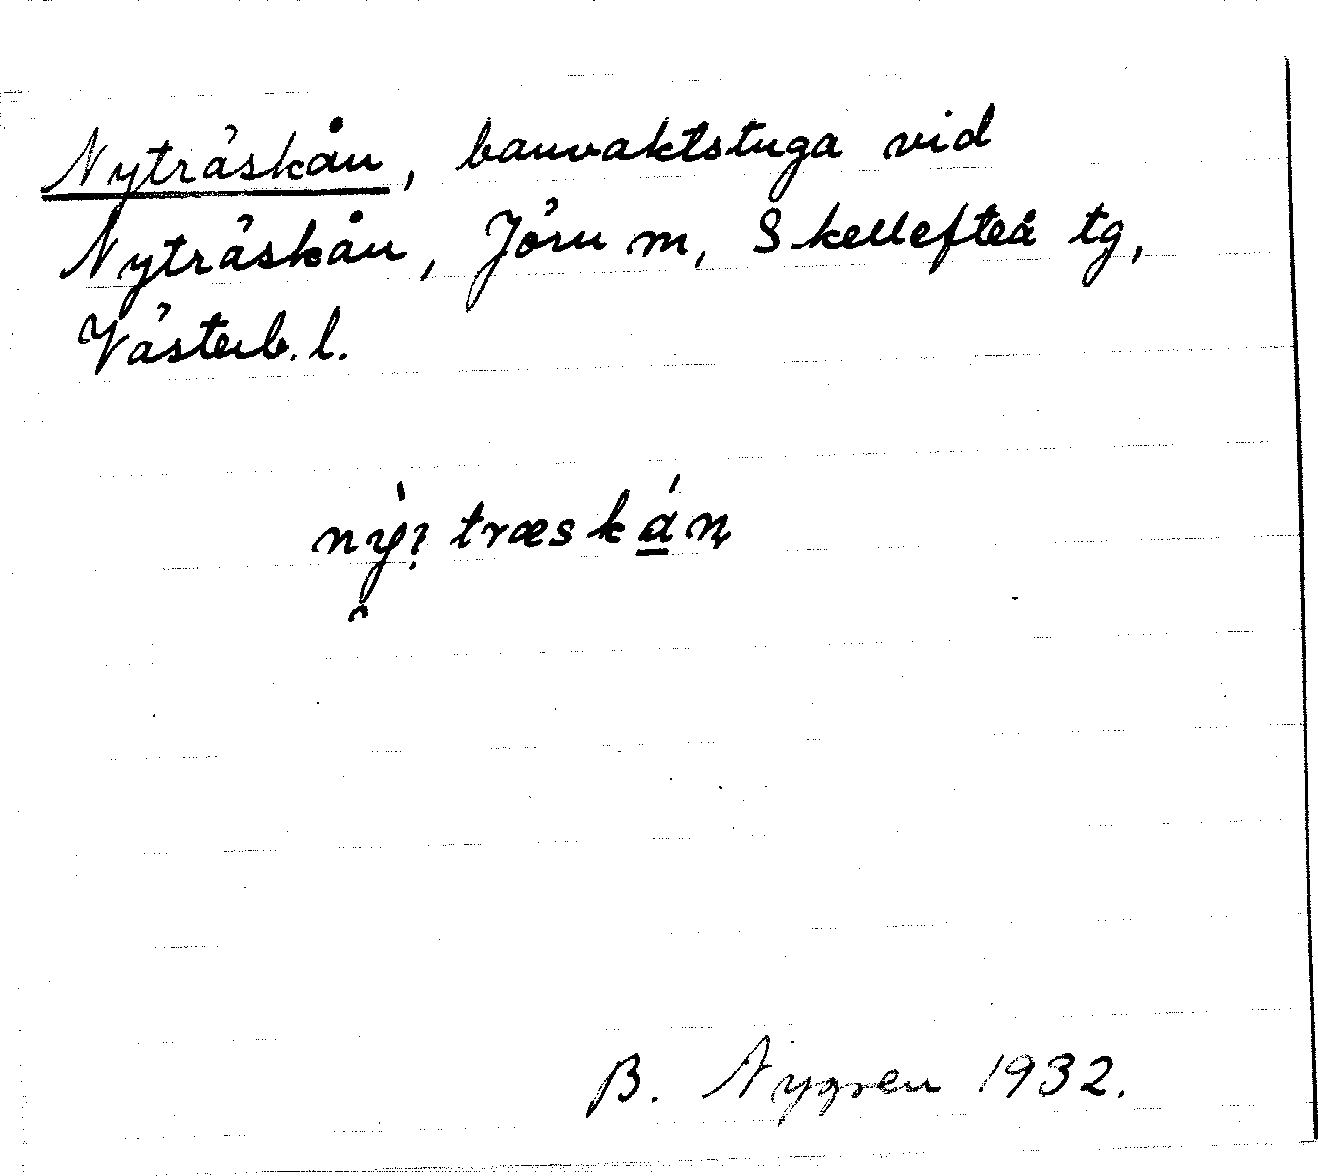 Nyträskån, banvaktstuga vid
Nyträskån, Jörn m, Skellefteå tg,
Västerb. l.
træskán
B. Nygren 1932.